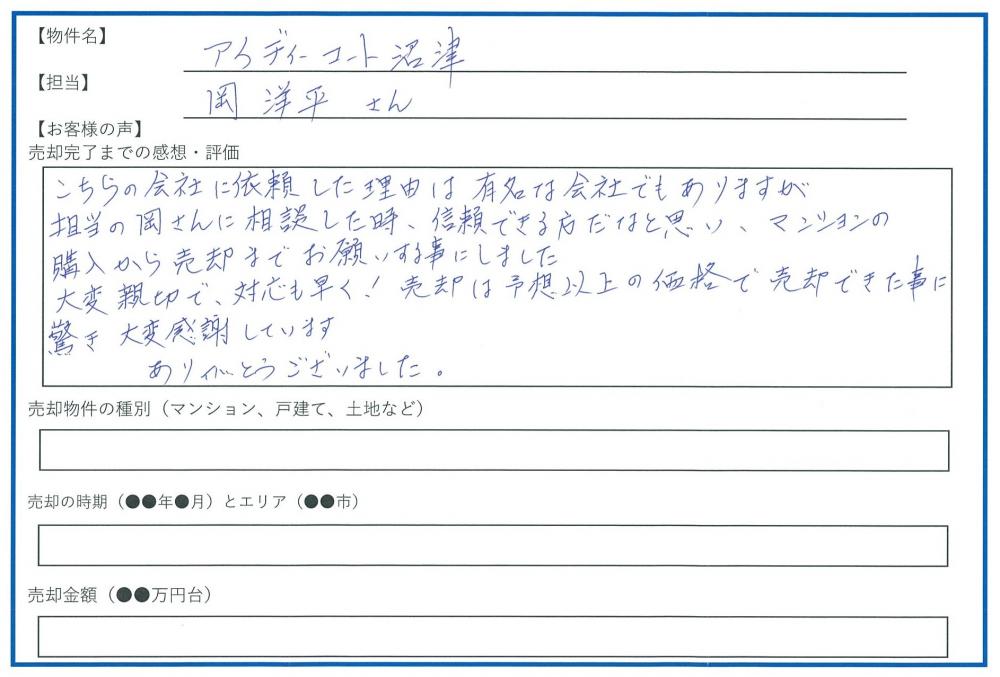 【物件名】
アイディーコート沼津
【担当】
岡 洋平 さん
【お客様の声】
売却完了までの感想・評価
こちらの会社に依頼した理由は有名な会社でもありますが
担当の岡さんに相談した時、信頼できる方だなと思い、マンションの
購入から売却までお願いする事にしました
大変親切で、対応も早く!売却は予想以上の価格で売却できた事に
驚き 大変感謝しています
ありがとうございました。
売却物件の種別(マンション、戸建て、土地など)
売却の時期(●●年●月)とエリア(●●市)
売却金額(●●万円台)